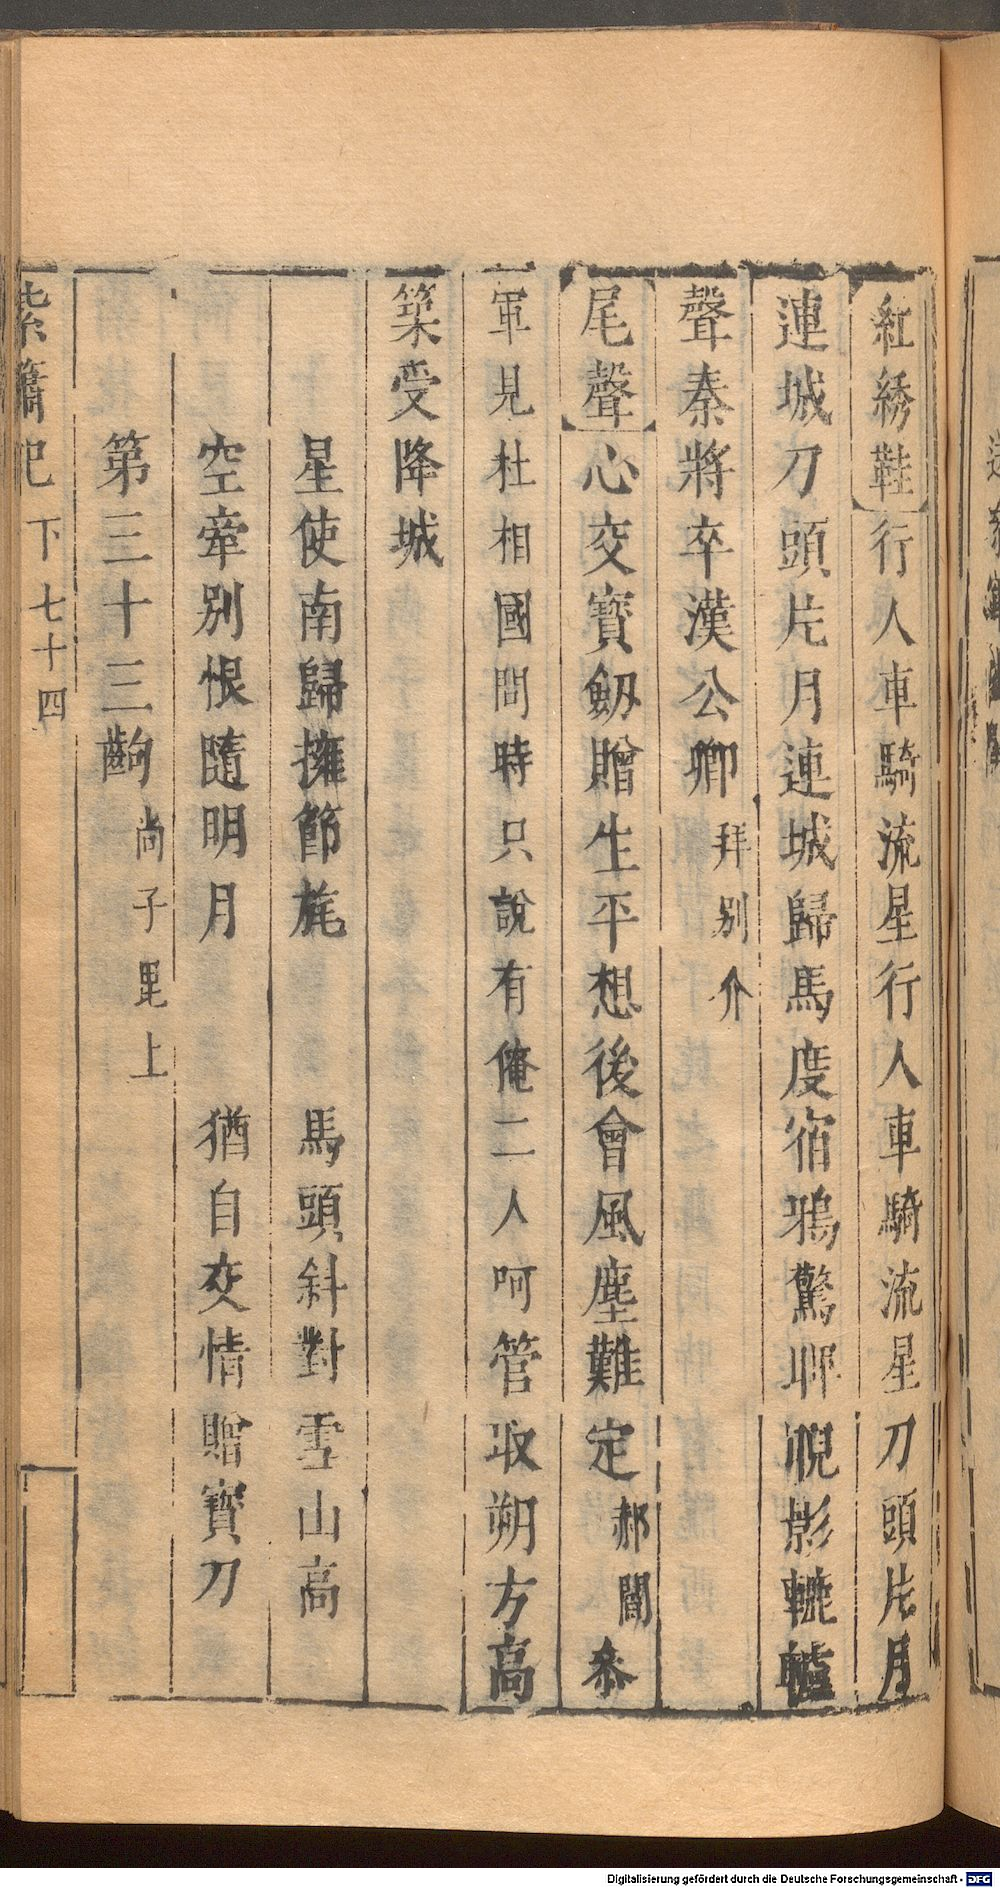 【紅綉鞋】行人車騎流星行人車騎流星刀頭片月
連城刀頭片月連城歸馬度宿鴉驚聊睨影轆轤
聲秦將卒漢公卿 拜別介
【尾聲】心交寶劒贈生平想後會風塵難定 郝閻 叅
軍見杜相國問時只說有俺二人呵管取朔方高
築受降城
星使南歸擁節旄 馬頭斜對雪山高
空牽別恨隨明月 猶自交情贈寶刀
第三十三齣 尚子毘上
紫簫記 下 七十四
Digitalisierung gefördert durch die Deutsche Forschungsgemeinschaft - DFG